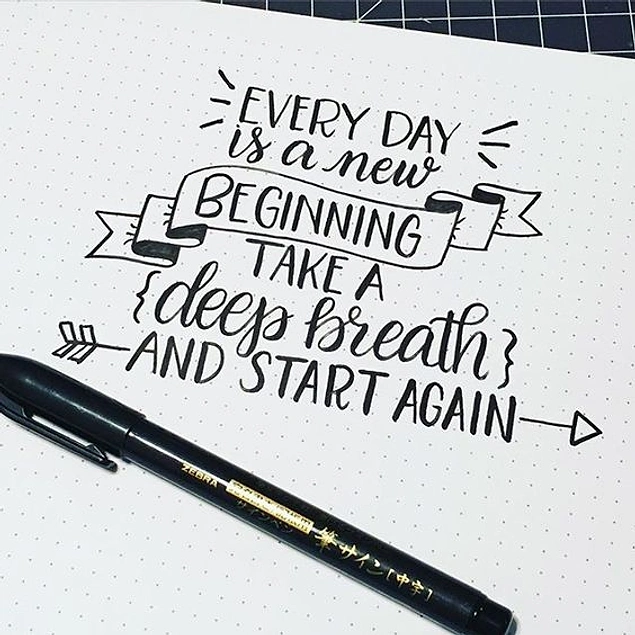 EVERY DAY
is a new
BEGINNING
TAKE A
{deep breath}
AND START AGAIN
ZEBRA
筆サイン「中字」
サインペン